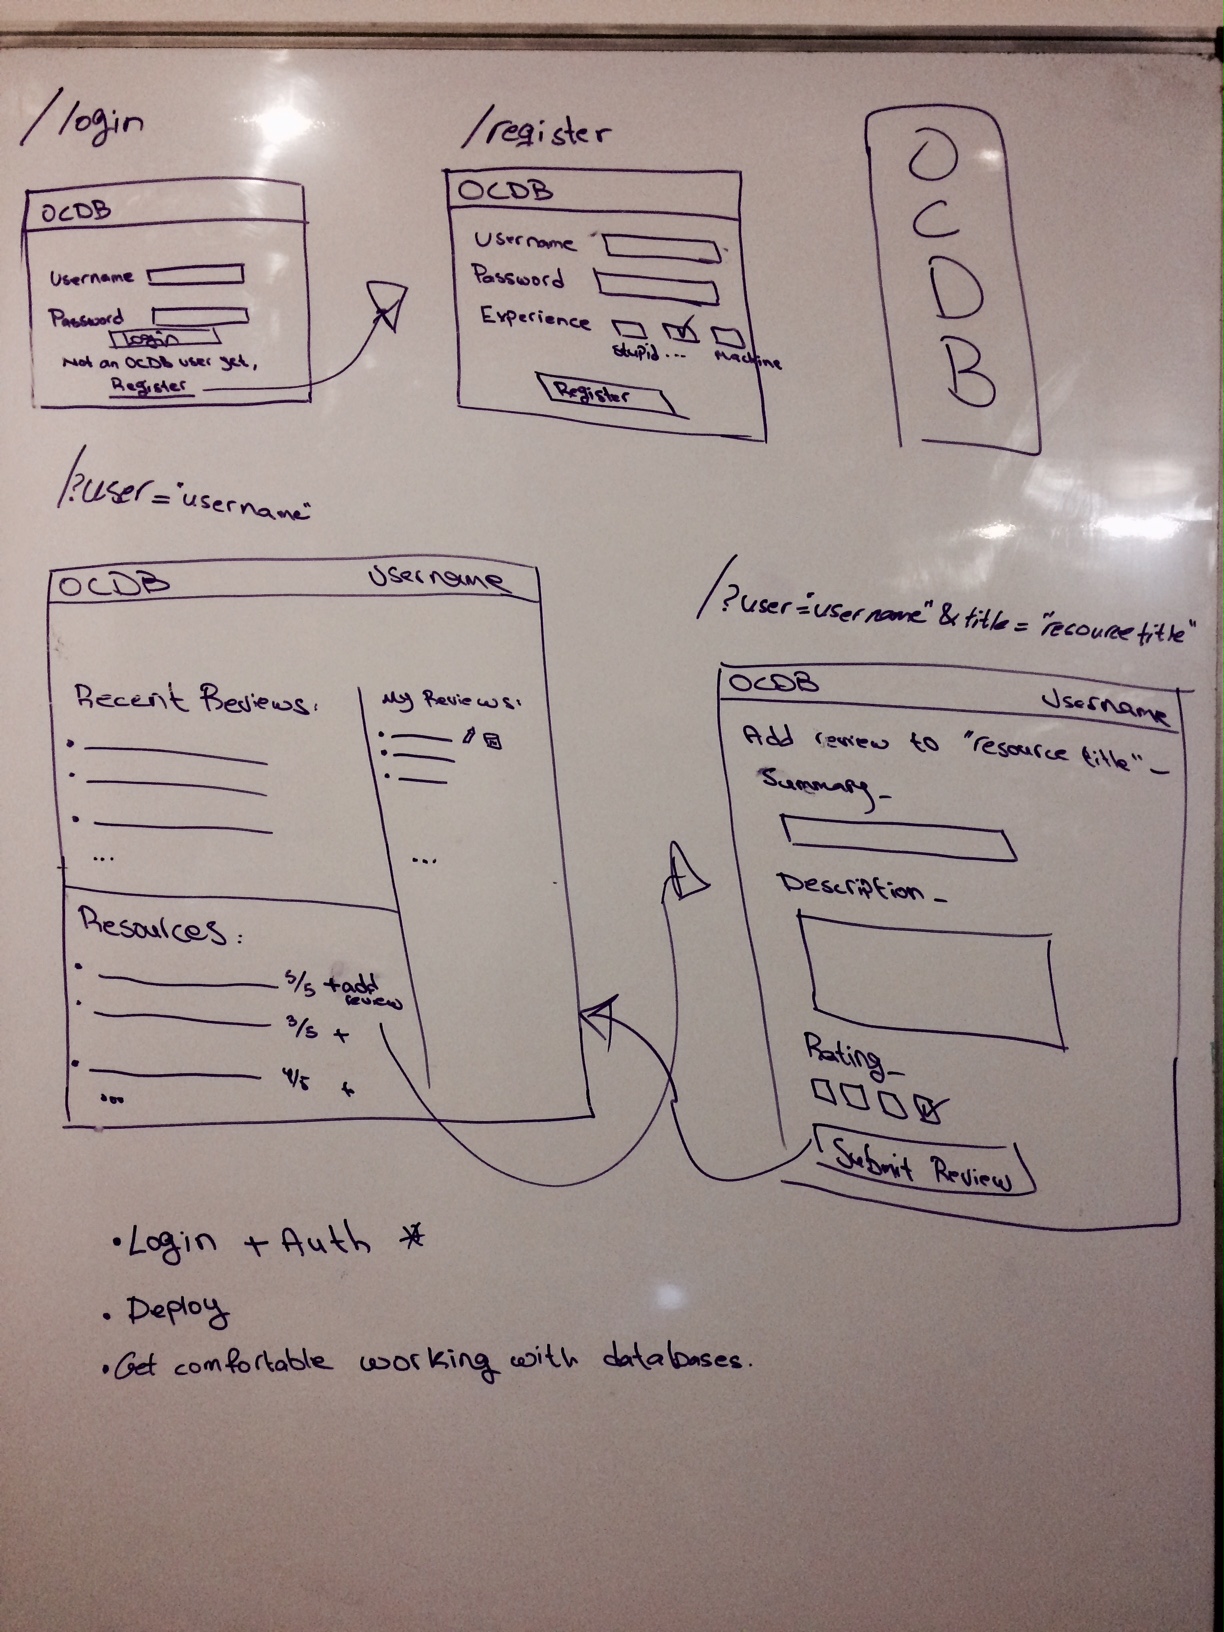 /login
OCDB
Username
Password
Login
Not an OCDB user yet,
Register
/register
OCDB
Username
Password
Experience
Stupid ... Machine
Register
O
C
D
B
/?user="username"
OCDB Username
Recent Reviews:
...
My Reviews:
...
Resources:
5/5 +add review
3/5 +
4/5 +
...
/?user="username"&title="resource title"
OCDB Username
Add review to "resource title"_
Summary_
Description_
Rating_
Submit Review
• Login + Auth *
• Deploy
• Get comfortable working with databases.